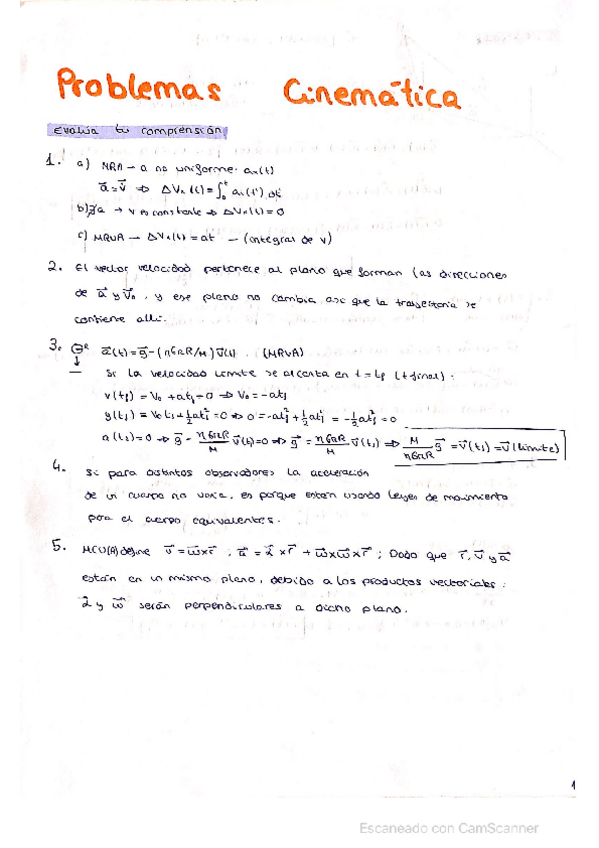 Problemas Cinemática
Evalúa tu comprensión
1. a) MRA - a no uniforme. aₓ(t)
a⃗ = v⃗ ⇒ ΔVₓ(t) = ∫₀ᵗ aₓ(t') dt
b) ∄a → v es constante ⇒ ΔVₓ(t) = 0
c) MRUA - ΔVₓ(t) = at - (integral de v)
2. El vector velocidad pertenece al plano que forman las direcciones
de a⃗ y V⃗₀, y ese plano no cambia así que la trayectoria se
contiene allí.
3. a⃗(t) = g⃗ - (η6πR/M) v⃗(t). (MRUA)
Si la velocidad límite se alcanza en t = t_f (t final).
v(t_f) = V₀ + at_f = 0 ⇒ V₀ = -at_f
y(t_f) = V₀t_f + ½at_f² = 0 ⇒ 0 = -at_f² + ½at_f² = -½at_f² = 0
a(t_f) = 0 ⇒ g⃗ - η6πR/M v⃗(t) = 0 ⇒ g⃗ = η6πR/M v⃗(t_f) ⇒ M/η6πR g⃗ = v⃗(t_f) = v⃗(límite)
4. Si para distintos observadores la aceleración
de un cuerpo no varía, es porque están usando leyes de movimiento
para el cuerpo equivalentes.
5. MCU(A) define v⃗ = ω⃗×r⃗, a⃗ = α⃗×r⃗ + ω⃗×ω⃗×r⃗; Dado que r⃗, v⃗ y a⃗
están en un mismo plano, debido a los productos vectoriales:
α⃗ y ω⃗ serán perpendiculares a dicho plano.
1
Escaneado con CamScanner